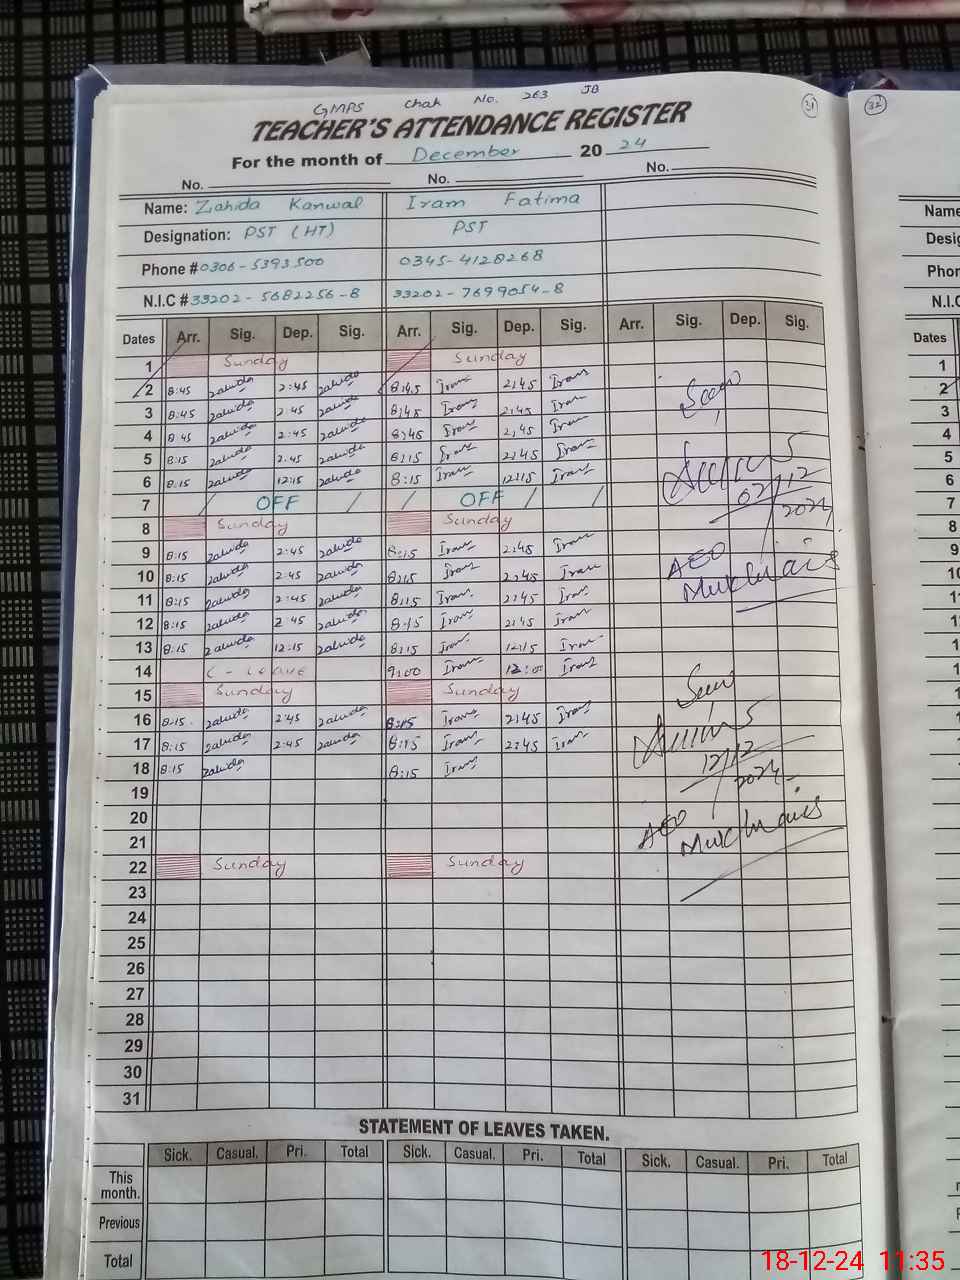 GMPS Chak No. 263 JB
31
32
TEACHER'S ATTENDANCE REGISTER
For the month of December 20 24
No. No. No.
Name: Zahida Kanwal Iram Fatima
Designation: PST (HT) PST
Phone # 0306-5393500 0345-4128268
N.I.C # 33202-5682256-8 33202-7699054-8
Dates Arr. Sig. Dep. Sig. Arr. Sig. Dep. Sig. Arr. Sig. Dep. Sig.
1 Sunday Sunday
2 8:45 Zahida 2:45 Zahida 8:45 Iram 2:45 Iram
3 8:45 Zahida 2:45 Zahida 8:45 Iram 2:45 Iram
4 8:45 Zahida 2:45 Zahida 8:45 Iram 2:45 Iram
5 8:15 Zahida 2:45 Zahida 8:15 Iram 2:45 Iram
6 8:15 Zahida 12:15 Zahida 8:15 Iram 12:15 Iram
7 OFF OFF
8 Sunday Sunday
9 8:15 Zahida 2:45 Zahida 8:15 Iram 2:45 Iram
10 8:15 Zahida 2:45 Zahida 8:15 Iram 2:45 Iram
11 8:15 Zahida 2:45 Zahida 8:15 Iram 2:45 Iram
12 8:15 Zahida 2:45 Zahida 8:15 Iram 2:45 Iram
13 8:15 Zahida 12:15 Zahida 8:15 Iram 12:15 Iram
14 C-Leave 9:00 Iram 12:00 Iram
15 Sunday Sunday
16 8:15 Zahida 2:45 Zahida 8:15 Iram 2:45 Iram
17 8:15 Zahida 2:45 Zahida 8:15 Iram 2:45 Iram
18 8:15 Zahida 8:15 Iram
19
20
21
22 Sunday Sunday
23
24
25
26
27
28
29
30
31
Seen
02/12
2024
AEO
Seen
12/12
2024
AEO
STATEMENT OF LEAVES TAKEN.
Sick. Casual. Pri. Total Sick. Casual. Pri. Total Sick. Casual. Pri. Total
This month.
Previous
Total
Dates
1
2
3
4
5
6
7
8
9
18-12-24 11:35